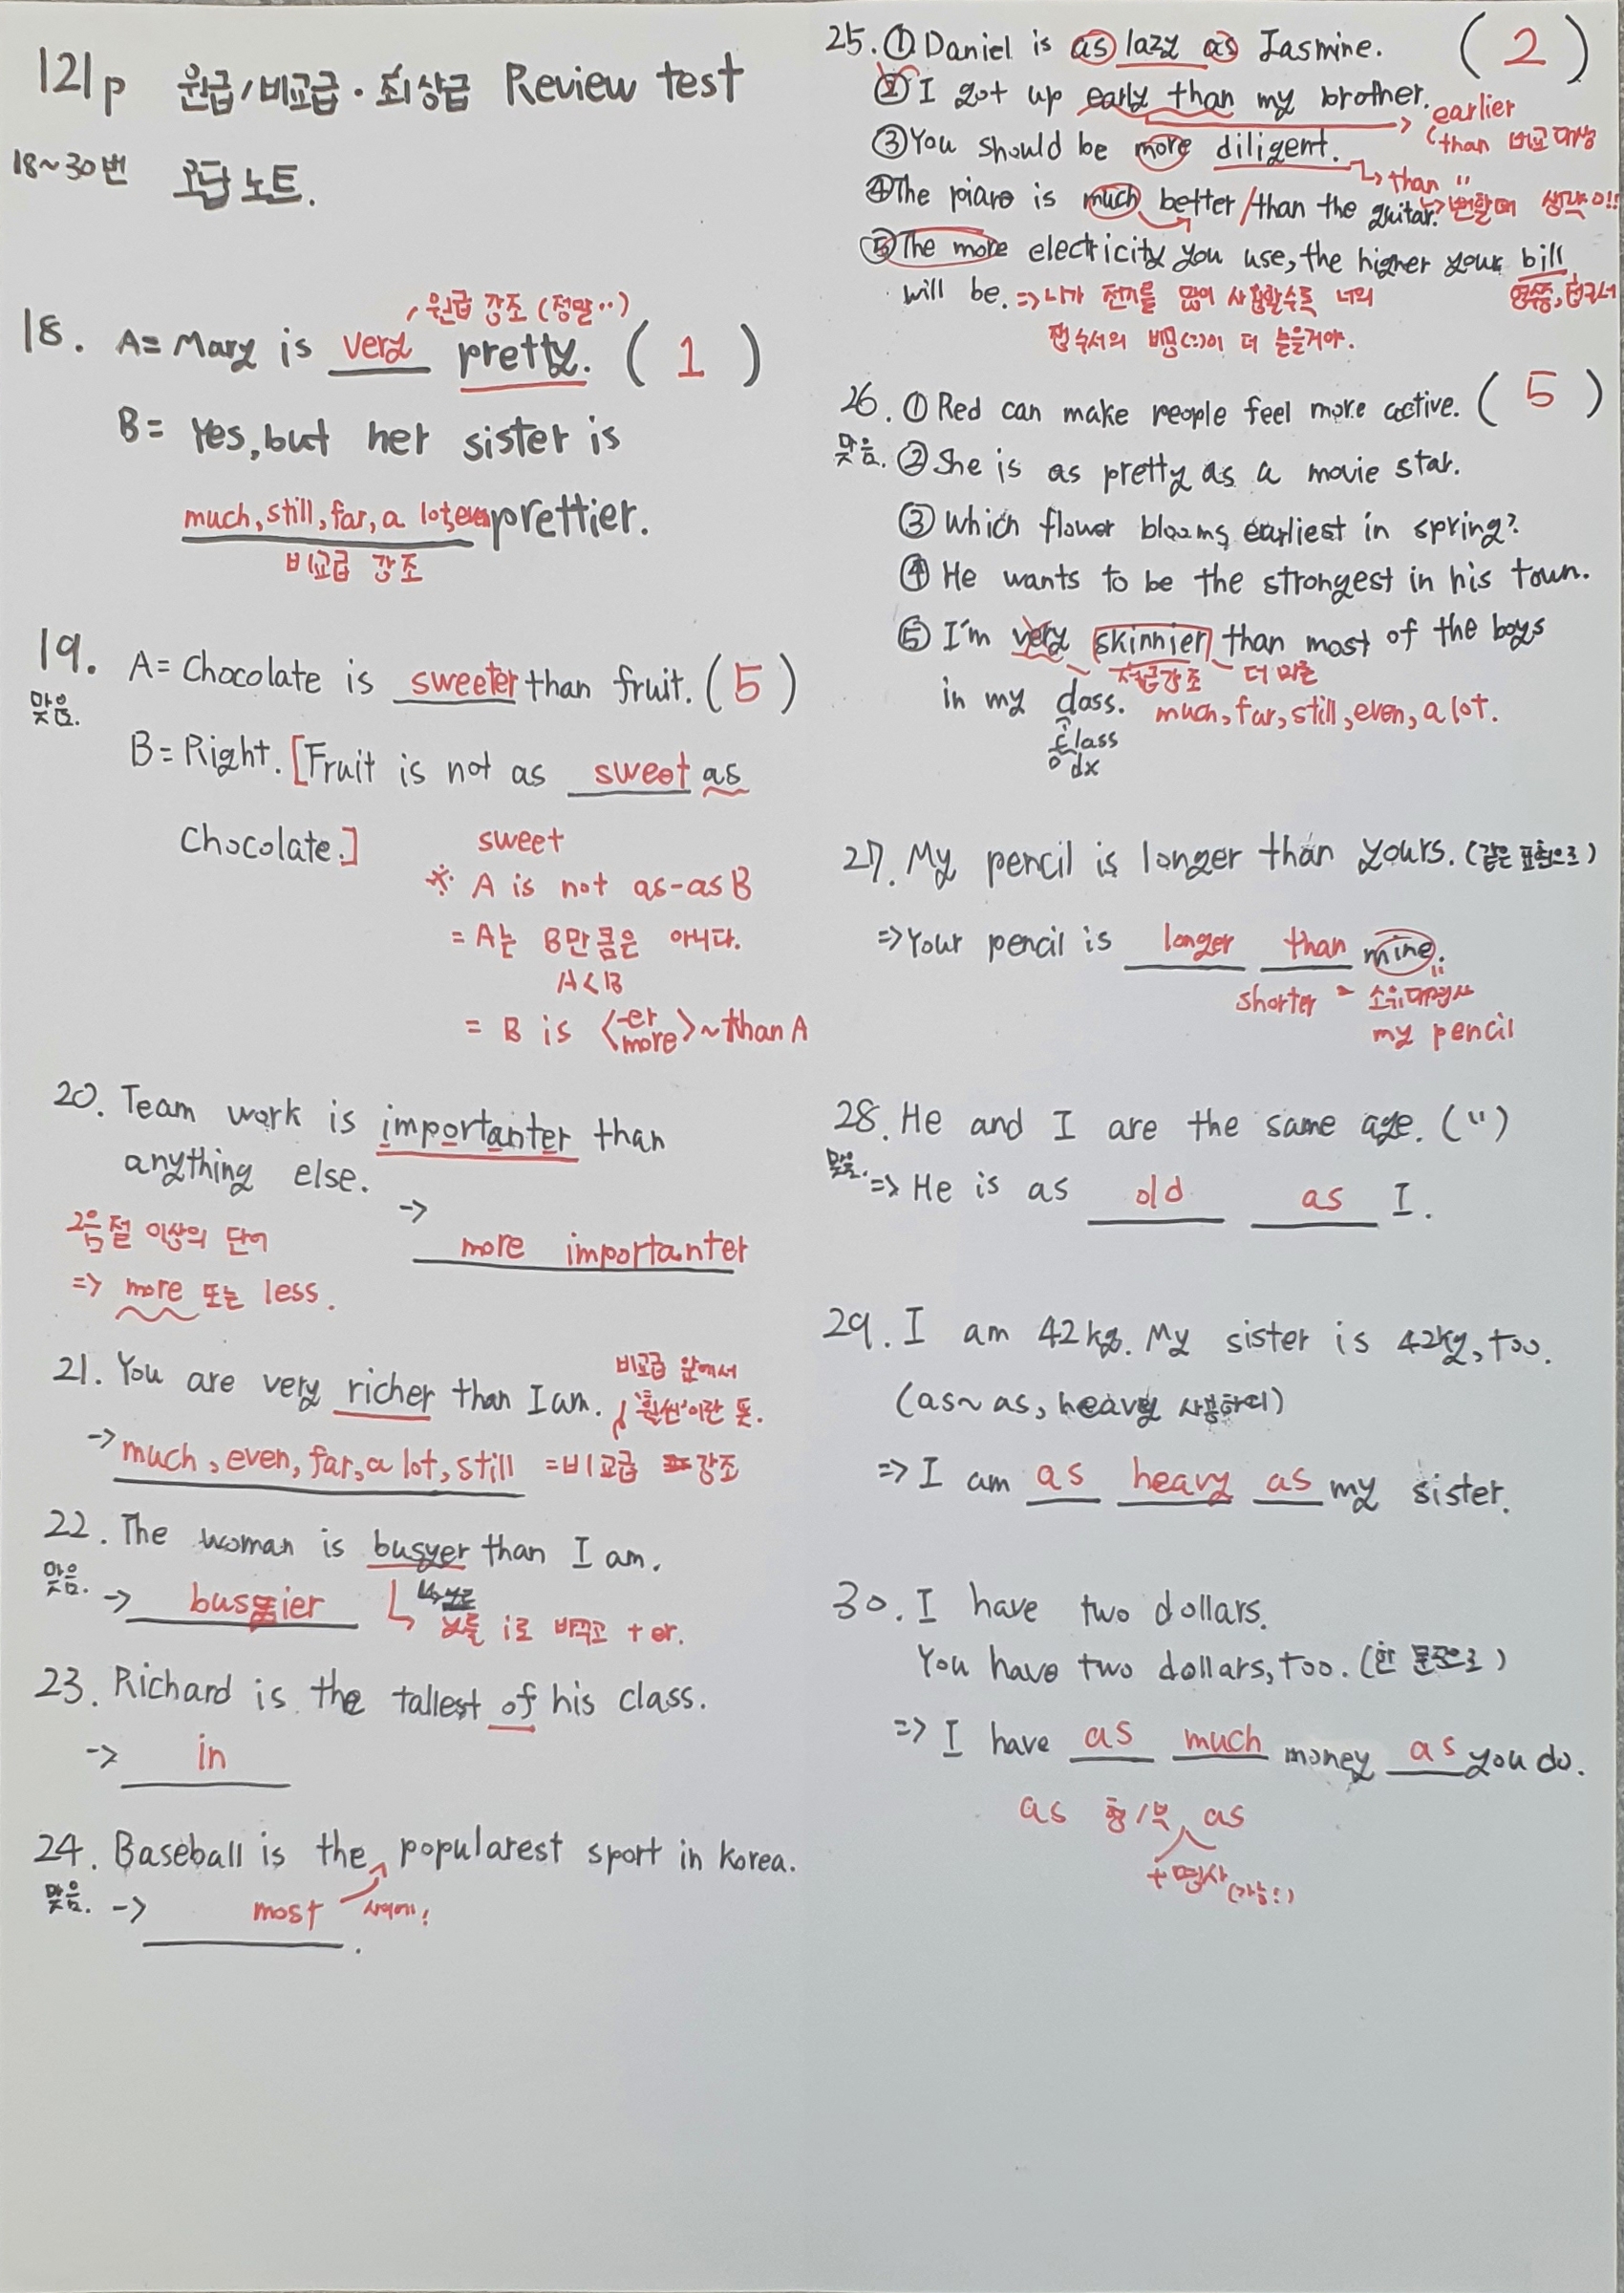 121p 원급/비교급·최상급 Review test
18~30번 오답노트.
18. A= Mary is very pretty. ( 1 )
원급 강조 (정말..)
B= Yes, but her sister is
much, still, far, a lot, even prettier.
비교급 강조
19. A= Chocolate is sweeter than fruit. ( 5 )
맞음.
B= Right. [Fruit is not as sweet as
Chocolate.]
sweet
※ A is not as-as B
= A는 B만큼은 아니다.
A<B
= B is <-er more>~than A
20. Team work is importanter than
anything else.
-> more importanter
2음절 이상의 단어
=> more 또는 less.
21. You are very richer than I am.
비교급 앞에서
'훨씬'이란 뜻.
-> much, even, far, a lot, still = 비교급 강조
22. The woman is busyer than I am.
맞음.
-> busier
y를 i로 바꾸고 + er.
23. Richard is the tallest of his class.
-> in
24. Baseball is the popularest sport in korea.
맞음. -> most 사이에!
.
25. ① Daniel is as lazy as Jasmine. ( 2 )
② I got up early than my brother.
earlier
than 비교대상
③ You should be more diligent.
than "
④ The piano is much better/than the guitar.
=> 뻔할때 생략 O!!
⑤ The more electricity you use, the higher your bill
will be. => 니가 전기를 많이 사용할수록 너의
영수증, 청구서
영수서의 비용(:)이 더 늘을거야.
26. ① Red can make people feel more active. ( 5 )
맞음. ② She is as pretty as a movie star.
③ which flower blooms earliest in spring?
④ He wants to be the strongest in his town.
⑤ I'm very skinnier than most of the boys
더 마른
in my class. much, far, still, even, a lot.
class
dx
27. My pencil is longer than yours. (같은 표현으로)
=> Your pencil is longer than mine.
shorter 소유대명사
my pencil
28. He and I are the same age. ( " )
맞음. => He is as old as I.
29. I am 42kg. My sister is 42kg, too.
(as~as, heavy 사용하되)
=> I am as heavy as my sister.
30. I have two dollars.
You have two dollars, too. (한 문장으로)
=> I have as much money as you do.
as 형/부 as
+ 명사 (가능!)